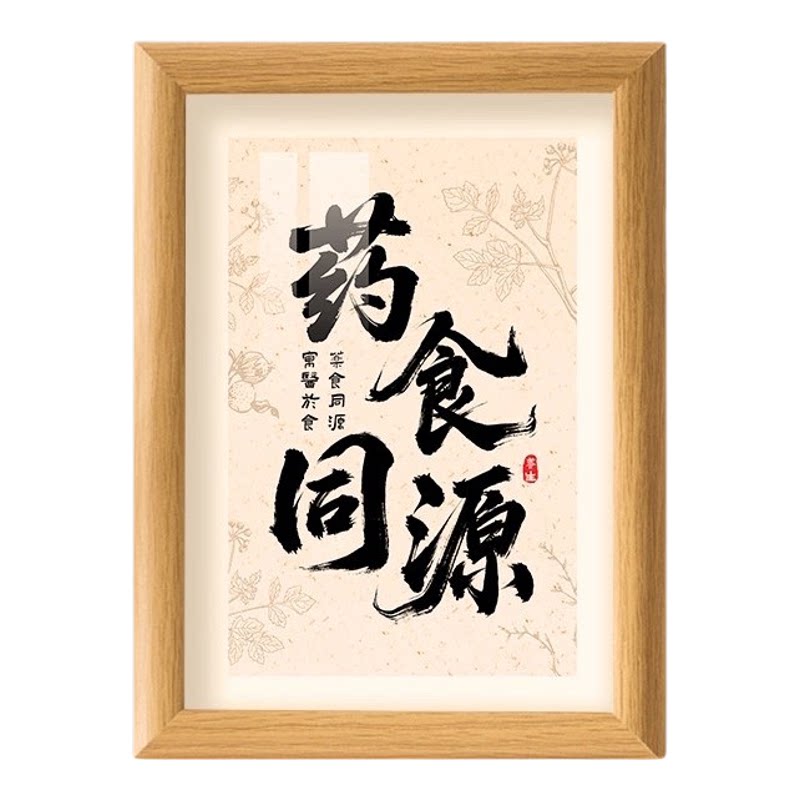 药食同源
藥食同源
寓醫於食